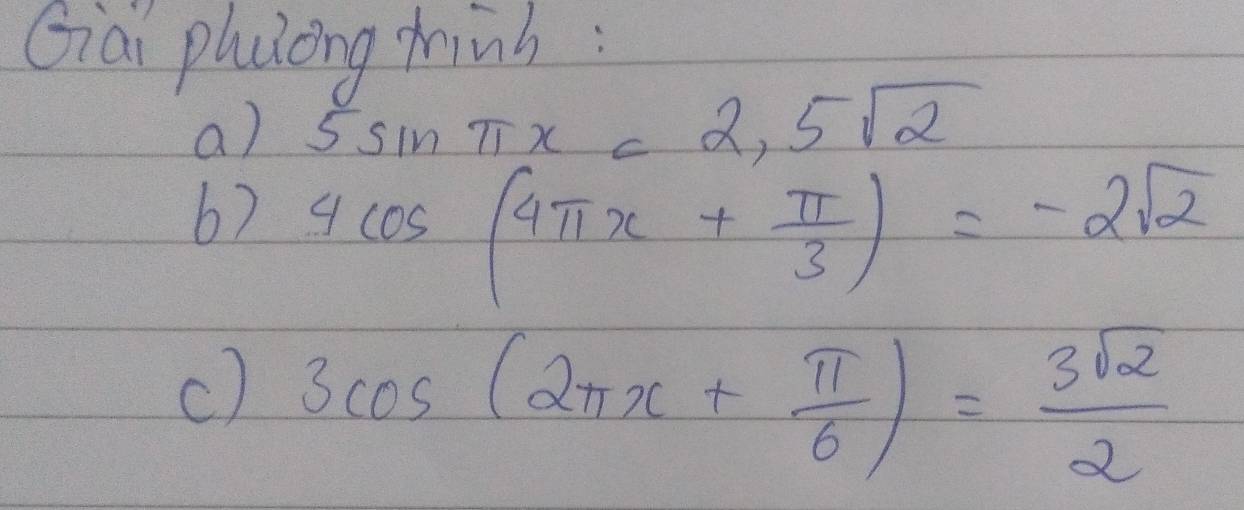 Giải phương trình :
a) 5 sin πx = 2,5√2
b) 4 cos (4πx + π/3) = -2√2
c) 3 cos (2πx + π/6) = 3√2/2